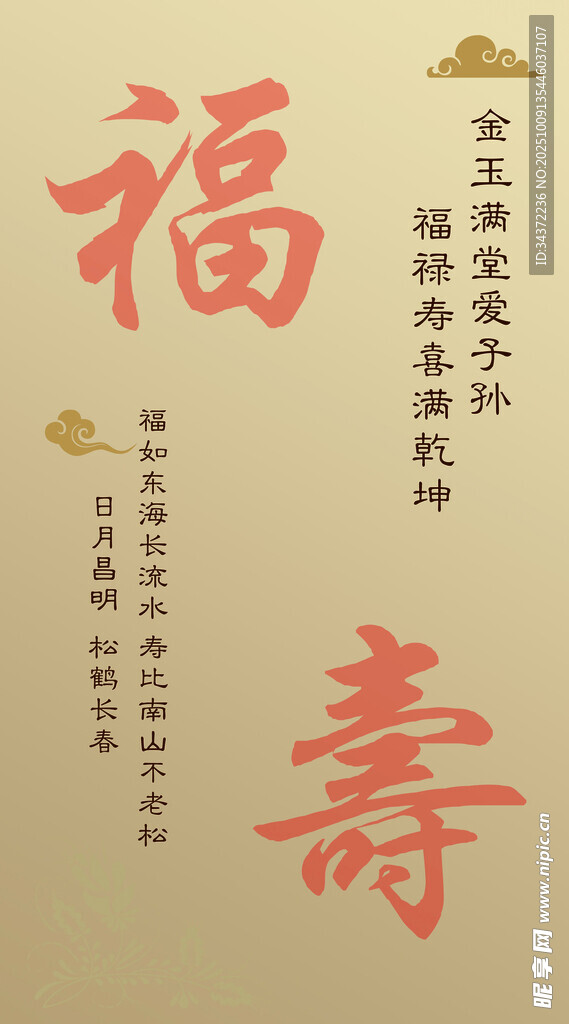 金玉满堂爱子孙
福禄寿喜满乾坤
福
福如东海长流水 寿比南山不老松
日月昌明 松鹤长春
壽
ID:34372236 NO:20251009135446037107
昵享网 www.nipic.cn